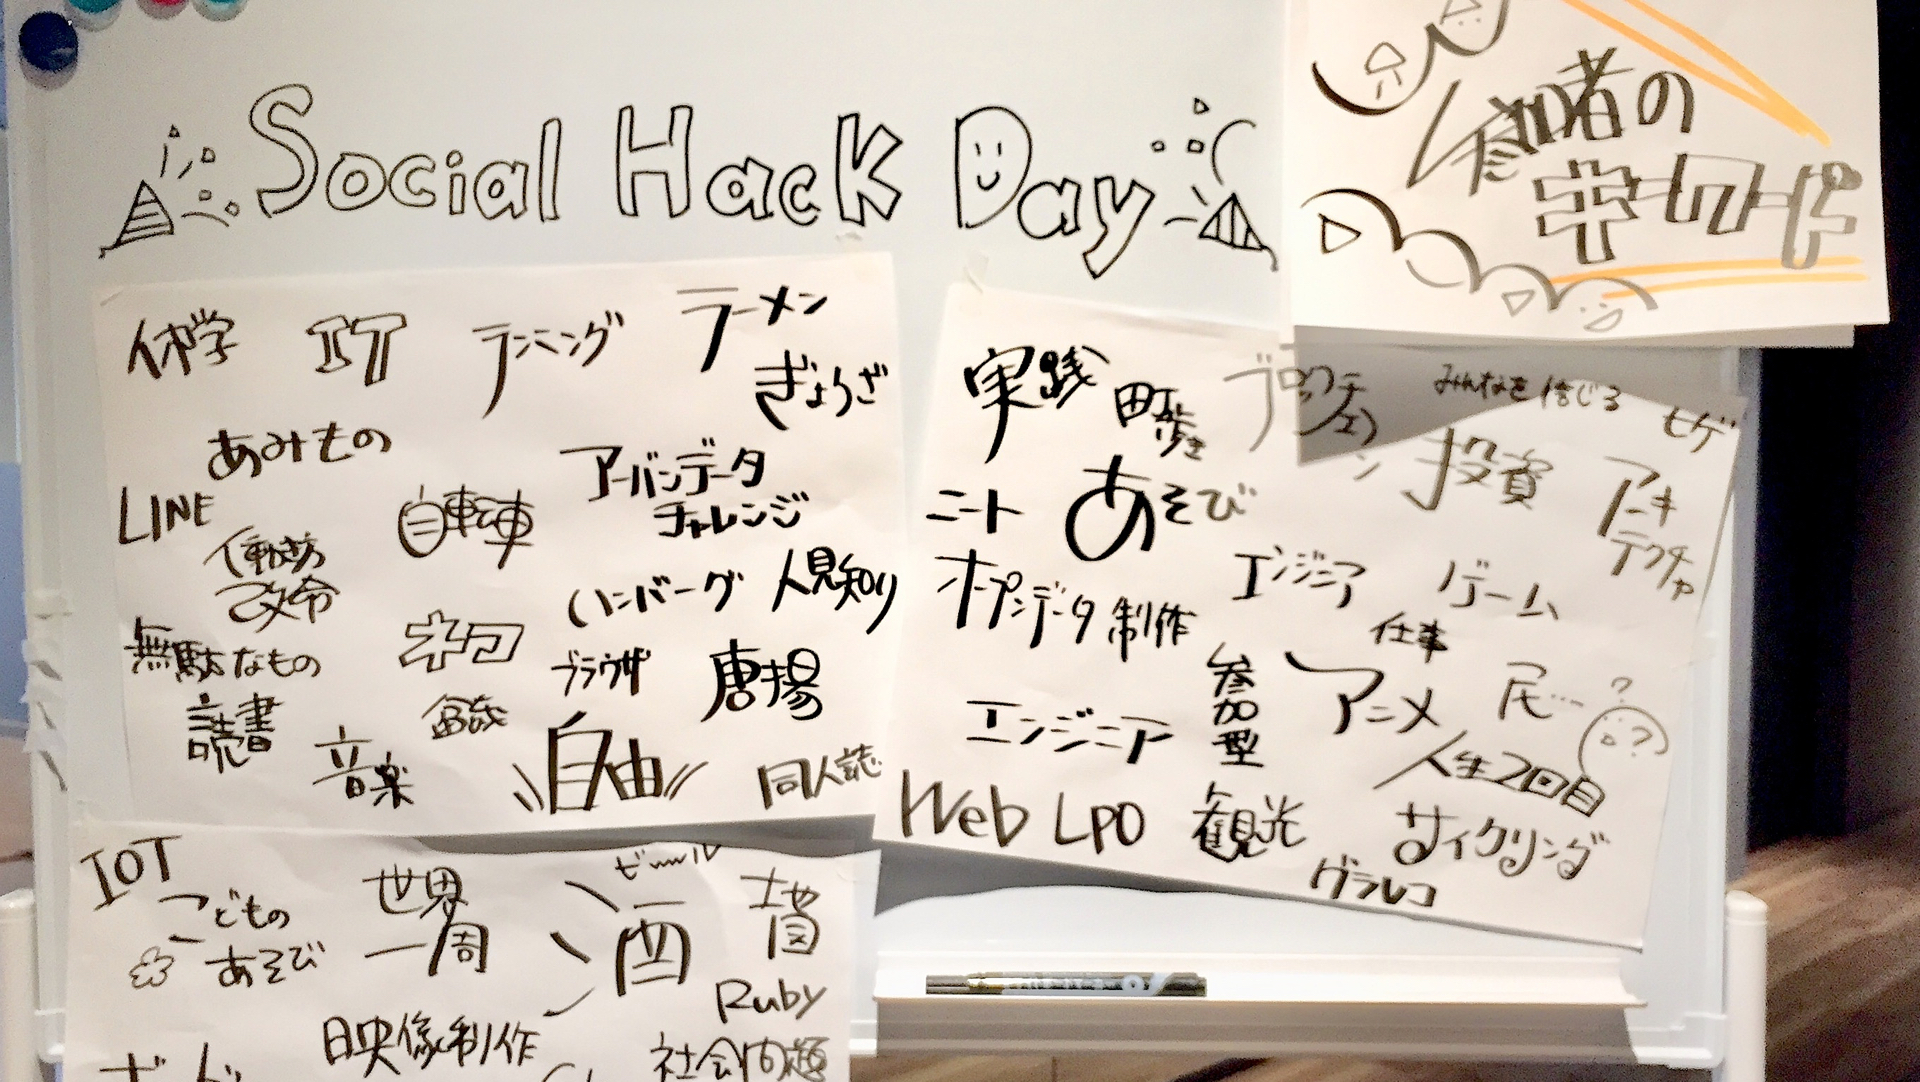 Social Hack Day
参加者の
キーワード
休学
IT
ランニング
ラーメン
ぎょうざ
あみもの
アーバンデータ
チャレンジ
LINE
自転車
働き方
改令
ハンバーグ
人見知り
無駄なもの
ネコ
ブラウザ
唐揚
読書
音楽
自由
同人誌
実践
町歩き
プロダクティ
みんなを信じる
ヒゲ
ニート
あそび
投資
アーキ
テクチャ
オープンデータ
制作
エンジニア
ゲーム
仕事
エンジニア
参加型
アニメ
尻…
?
?
人生2回目
Web
LPO
観光
サイクリング
グラレコ
IOT
こどもの
あそび
世界
一周
ビール
酒
地図
Ruby
映像制作
社会問題